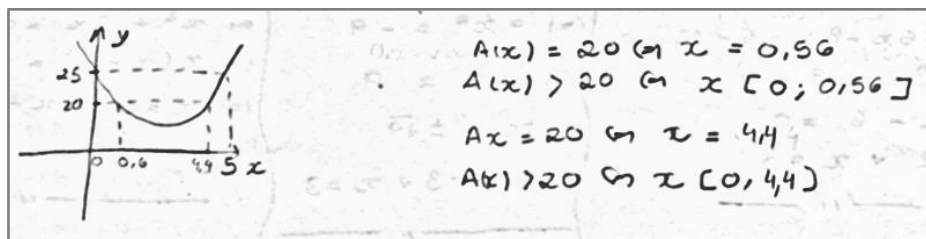 y
25
20
0 0,6 4,4 5 x
A(x) = 20 ⇔ x = 0,56
A(x) > 20 ⇔ x [0; 0,56]
Ax = 20 ⇔ x = 4,4
A(x) > 20 ⇔ x [0, 4,4]